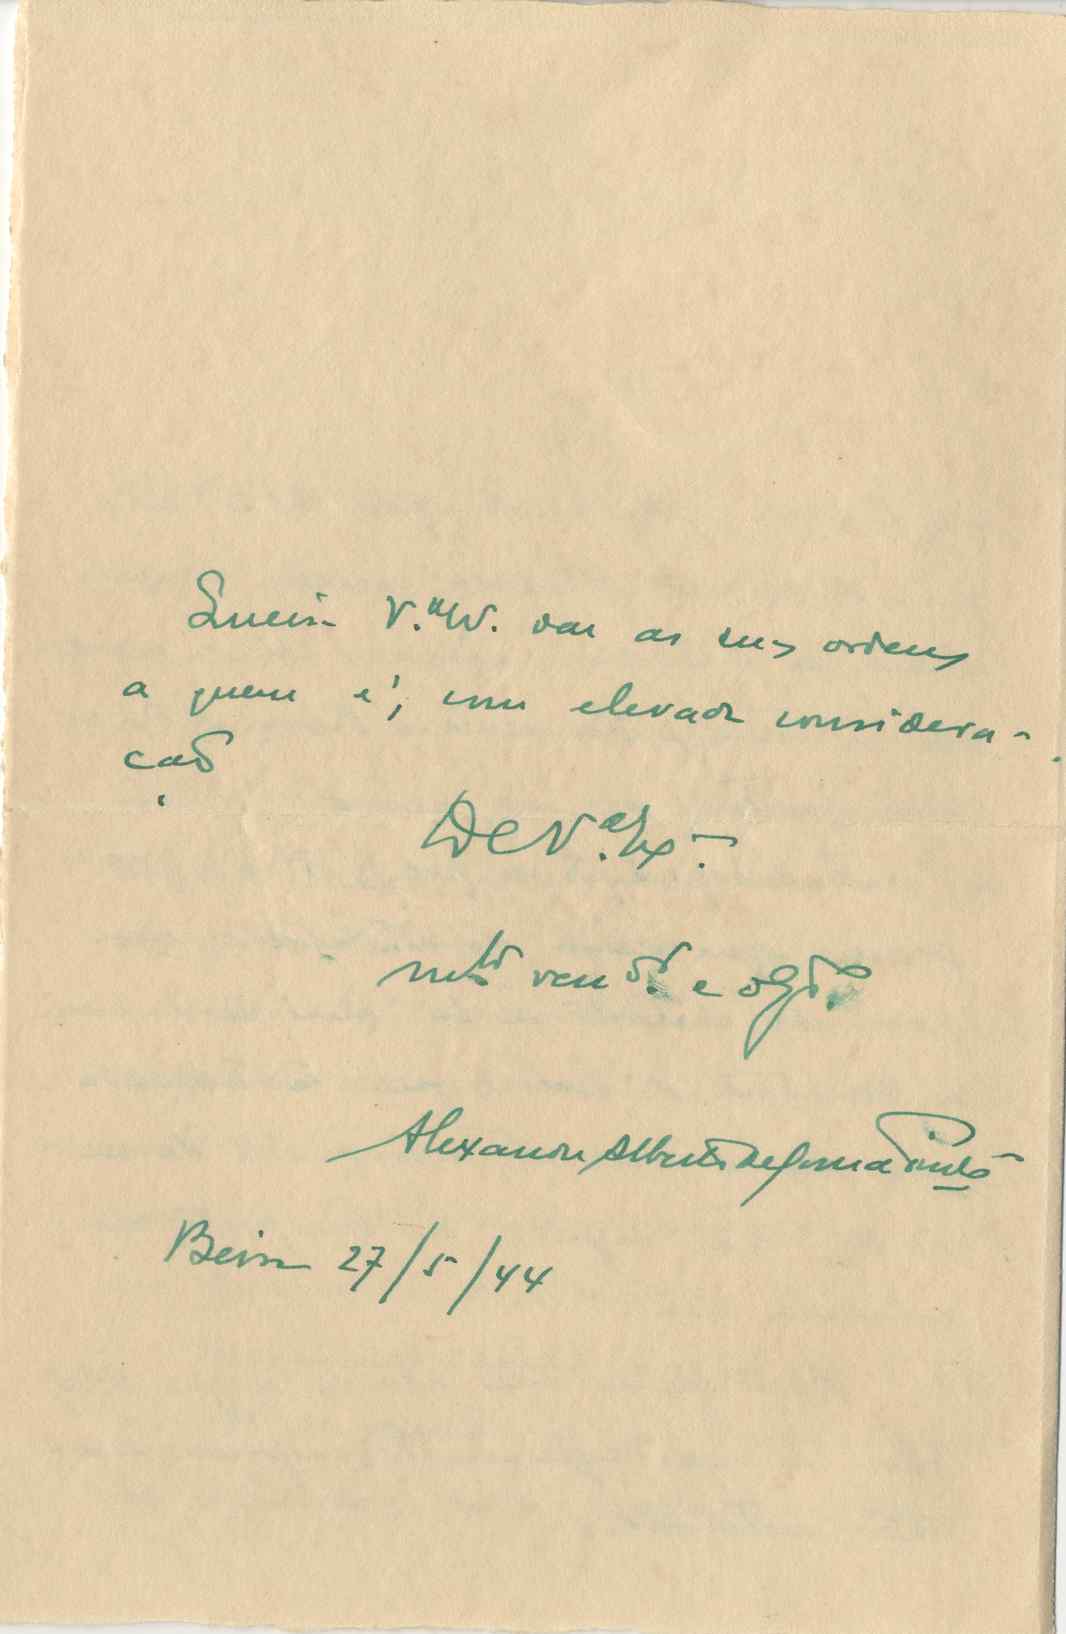 Queira V.ª Ex. dar as suas ordens
a quem é, com elevada considera-
ção
De V.ª Ex.
mto venor. e obgdo.
Alexandre Alberto de Sousa Pinto
Beira 27/5/44